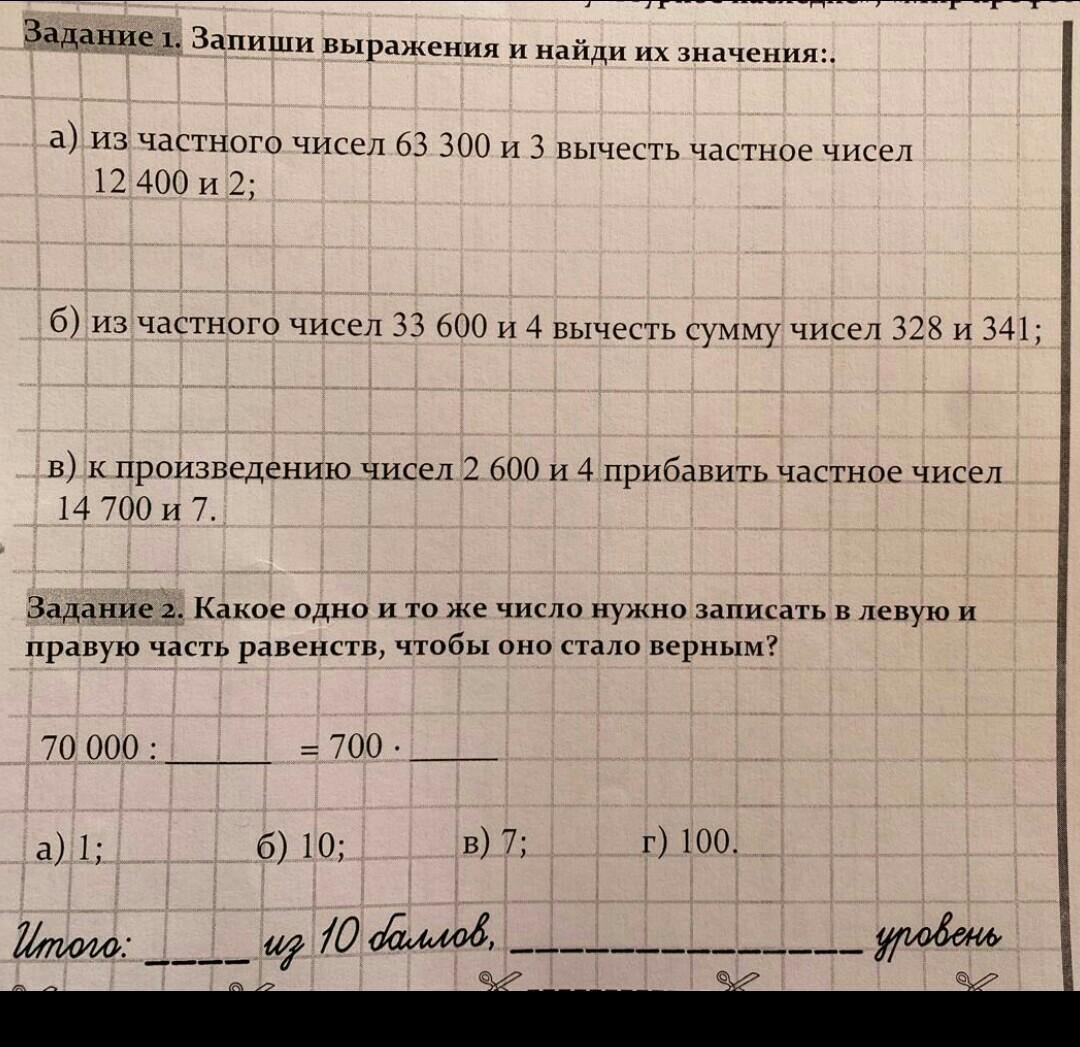 Задание 1. Запиши выражения и найди их значения:.
а) из частного чисел 63 300 и 3 вычесть частное чисел
12 400 и 2;
б) из частного чисел 33 600 и 4 вычесть сумму чисел 328 и 341;
в) к произведению чисел 2 600 и 4 прибавить частное чисел
14 700 и 7.
Задание 2. Какое одно и то же число нужно записать в левую и
правую часть равенств, чтобы оно стало верным?
70 000 : ______ = 700 · _____
а) 1; б) 10; в) 7; г) 100.
Итого: ____ из 10 баллов, ______________ уровень